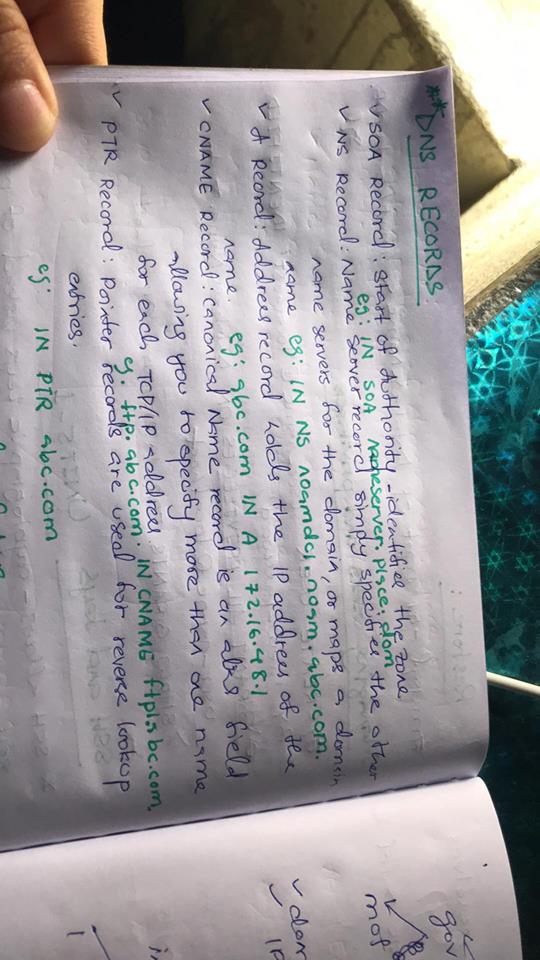 **DNS RECORDS
✓ SOA Record: Start of Authority - identifies the zone
eg: IN SOA nameserver.place.dom
✓ NS Record: Name server record simply specifies the other
name servers for the domain, or maps a domain
name eg: IN NS noamdc1.noam.abc.com.
✓ A Record: Address record holds the IP address of the
name. eg: abc.com IN A 172.16.48.1
✓ CNAME Record: Canonical Name record is an alias field
allowing you to specify more than one name
for each TCP/IP address
g. ftp.abc.com. IN CNAME ftp1.abc.com.
✓ PTR Record: Pointer records are used for reverse lookup
entries.
eg: IN PTR abc.com
gov
mof
✓ dom
IP
in